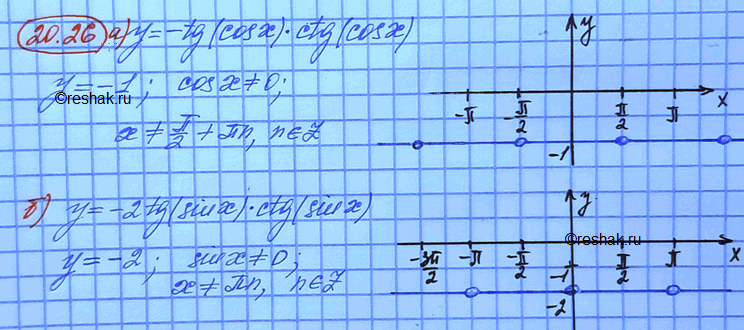 20.26 а) y = -tg(cosx)·ctg(cosx)
y = -1; cosx ≠ 0;
x ≠ π/2 + πn, n∈Z
©reshak.ru
y
-π -π/2 π/2 π x
-1
б) y = -2tg(sinx)·ctg(sinx)
y = -2; sinx ≠ 0;
x ≠ πn, n∈Z
y
©reshak.ru
-3π/2 -π -π/2 -1 π/2 π x
-2